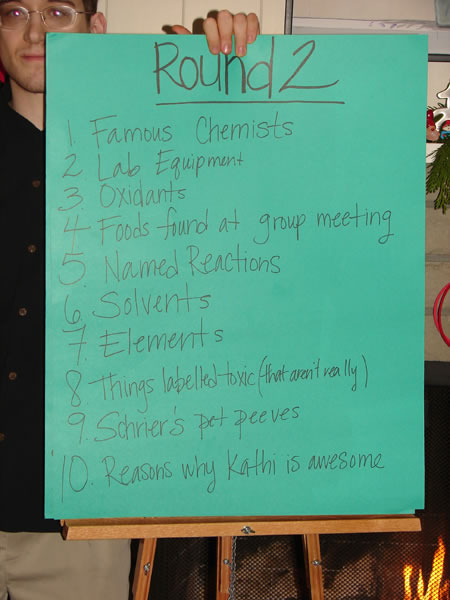 Round 2
1 Famous Chemists
2 Lab Equipment
3 Oxidants
4 Foods found at group meeting
5. Named Reactions
6 Solvents
7. Elements
8 Things labelled toxic (that aren't really)
9. Schrier's pet peeves
10. Reasons why Kathi is awesome